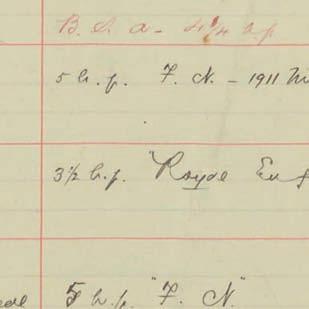 B. S. A - 4 1/4 h.p
5 h.p. F. N. - 1911 M
3 1/2 h.p. "Royal En
5 h.p. "F. N."